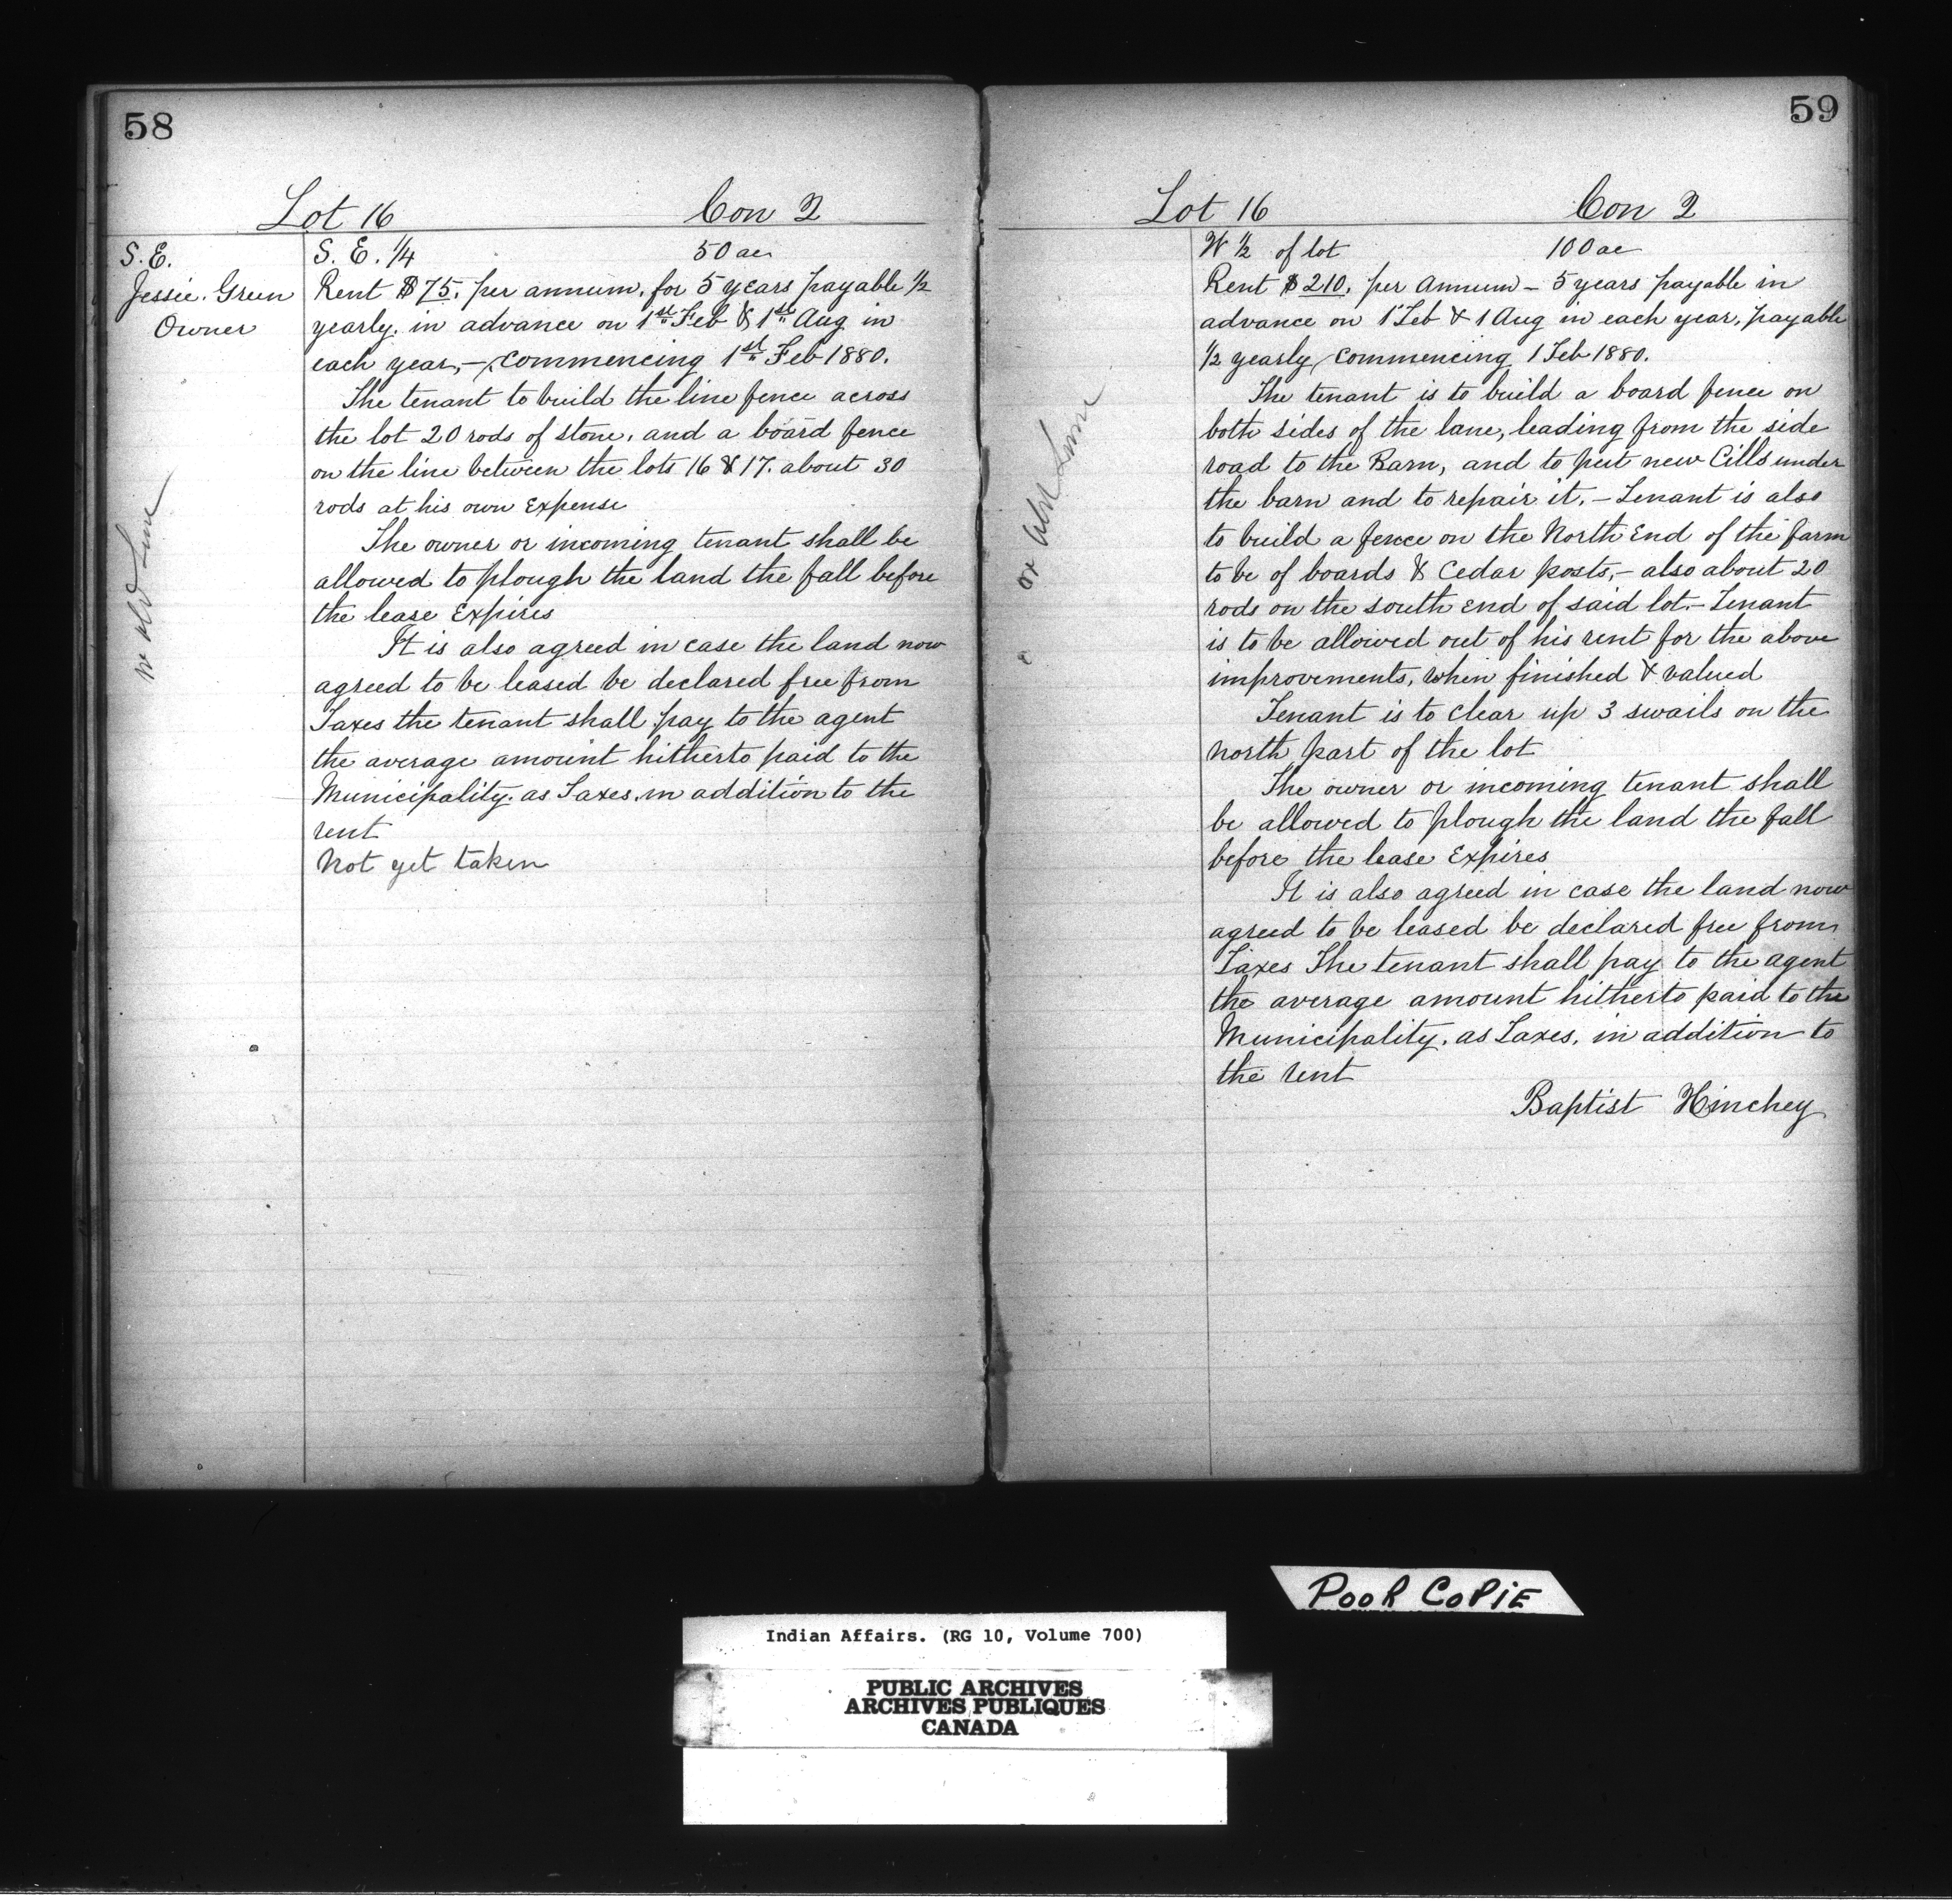 58
Lot 16 Con 2
S. E.
Jessie. Green
Owner
S. E. 1/4 50 ac
Rent $75. per annum, for 5 years payable 1/2
yearly. in advance on 1st Feb & 1st Aug in
each year, — commencing 1st Feb 1880.
The tenant to build the line fence across
the lot 20 rods of stone, and a board fence
on the line between the lots 16 & 17. about 30
rods at his own Expense
The owner or incoming tenant shall be
allowed to plough the land the fall before
the lease Expires
It is also agreed in case the land now
agreed to be leased be declared free from
Taxes the tenant shall pay to the agent
the average amount hitherto paid to the
Municipality. as Taxes. in addition to the
rent
Not yet taken
old
59
Lot 16 Con 2
W 1/2 of lot 100 ac
Rent $210. per Annum — 5 years payable in
advance on 1 Feb & 1 Aug in each year, payable
1/2 yearly, commencing 1 Feb 1880.
The tenant is to build a board fence on
both sides of the lane, leading from the side
road to the Barn, and to put new Cills under
the barn and to repair it. — Tenant is also
to build a fence on the North End of the farm
to be of boards & Cedar posts, — also about 20
rods on the south End of said lot. — Tenant
is to be allowed out of his rent for the above
improvements, when finished & valued
Tenant is to clear up 3 swails on the
north part of the lot
The owner or incoming tenant shall
be allowed to plough the land the fall
before the lease Expires
It is also agreed in case the land now
agreed to be leased be declared free from
Taxes The tenant shall pay to the agent
the average amount hitherto paid to the
Municipality. as Taxes. in addition to
the rent
Baptist Hinchey
POOR COPIE
Indian Affairs. (RG 10, Volume 700)
PUBLIC ARCHIVES
ARCHIVES PUBLIQUES
CANADA